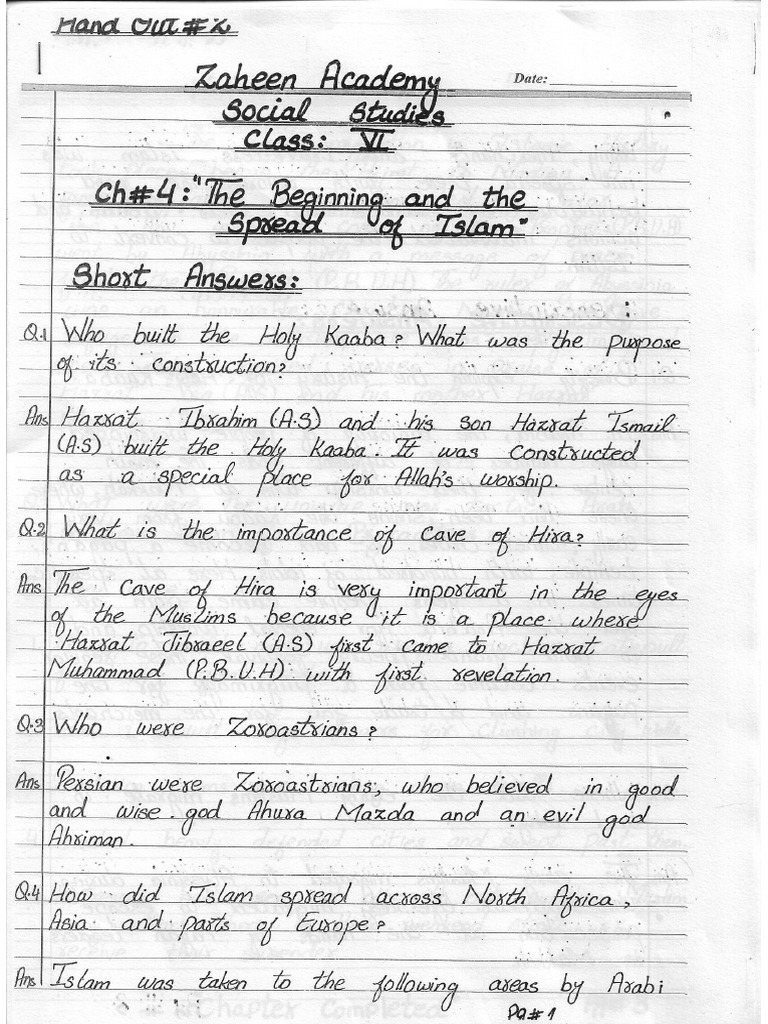 Hand Out # 2
Zaheen Academy
Date:
Social Studies
Class: VI
Ch#4: "The Beginning and the
Spread of Islam"
Short Answers:
Q.1 Who built the Holy Kaaba? What was the purpose
of its construction?
Ans Hazrat Ibrahim (A.S) and his son Hazrat Ismail
(A.S) built the Holy Kaaba. It was constructed
as a special place for Allah's worship.
Q.2 What is the importance of Cave of Hira?
Ans The Cave of Hira is very important in the eyes
of the Muslims because it is a place where
Hazrat Jibraeel (A.S) first came to Hazrat
Muhammad (P.B.U.H) with first revelation.
Q.3 Who were Zoroastrians?
Ans Persian were Zoroastrians, who believed in good
and wise god Ahura Mazda and an evil god
Ahriman.
Q.4 How did Islam spread across North Africa,
Asia and parts of Europe?
Ans Islam was taken to the following areas by Arabi
Pg# 1